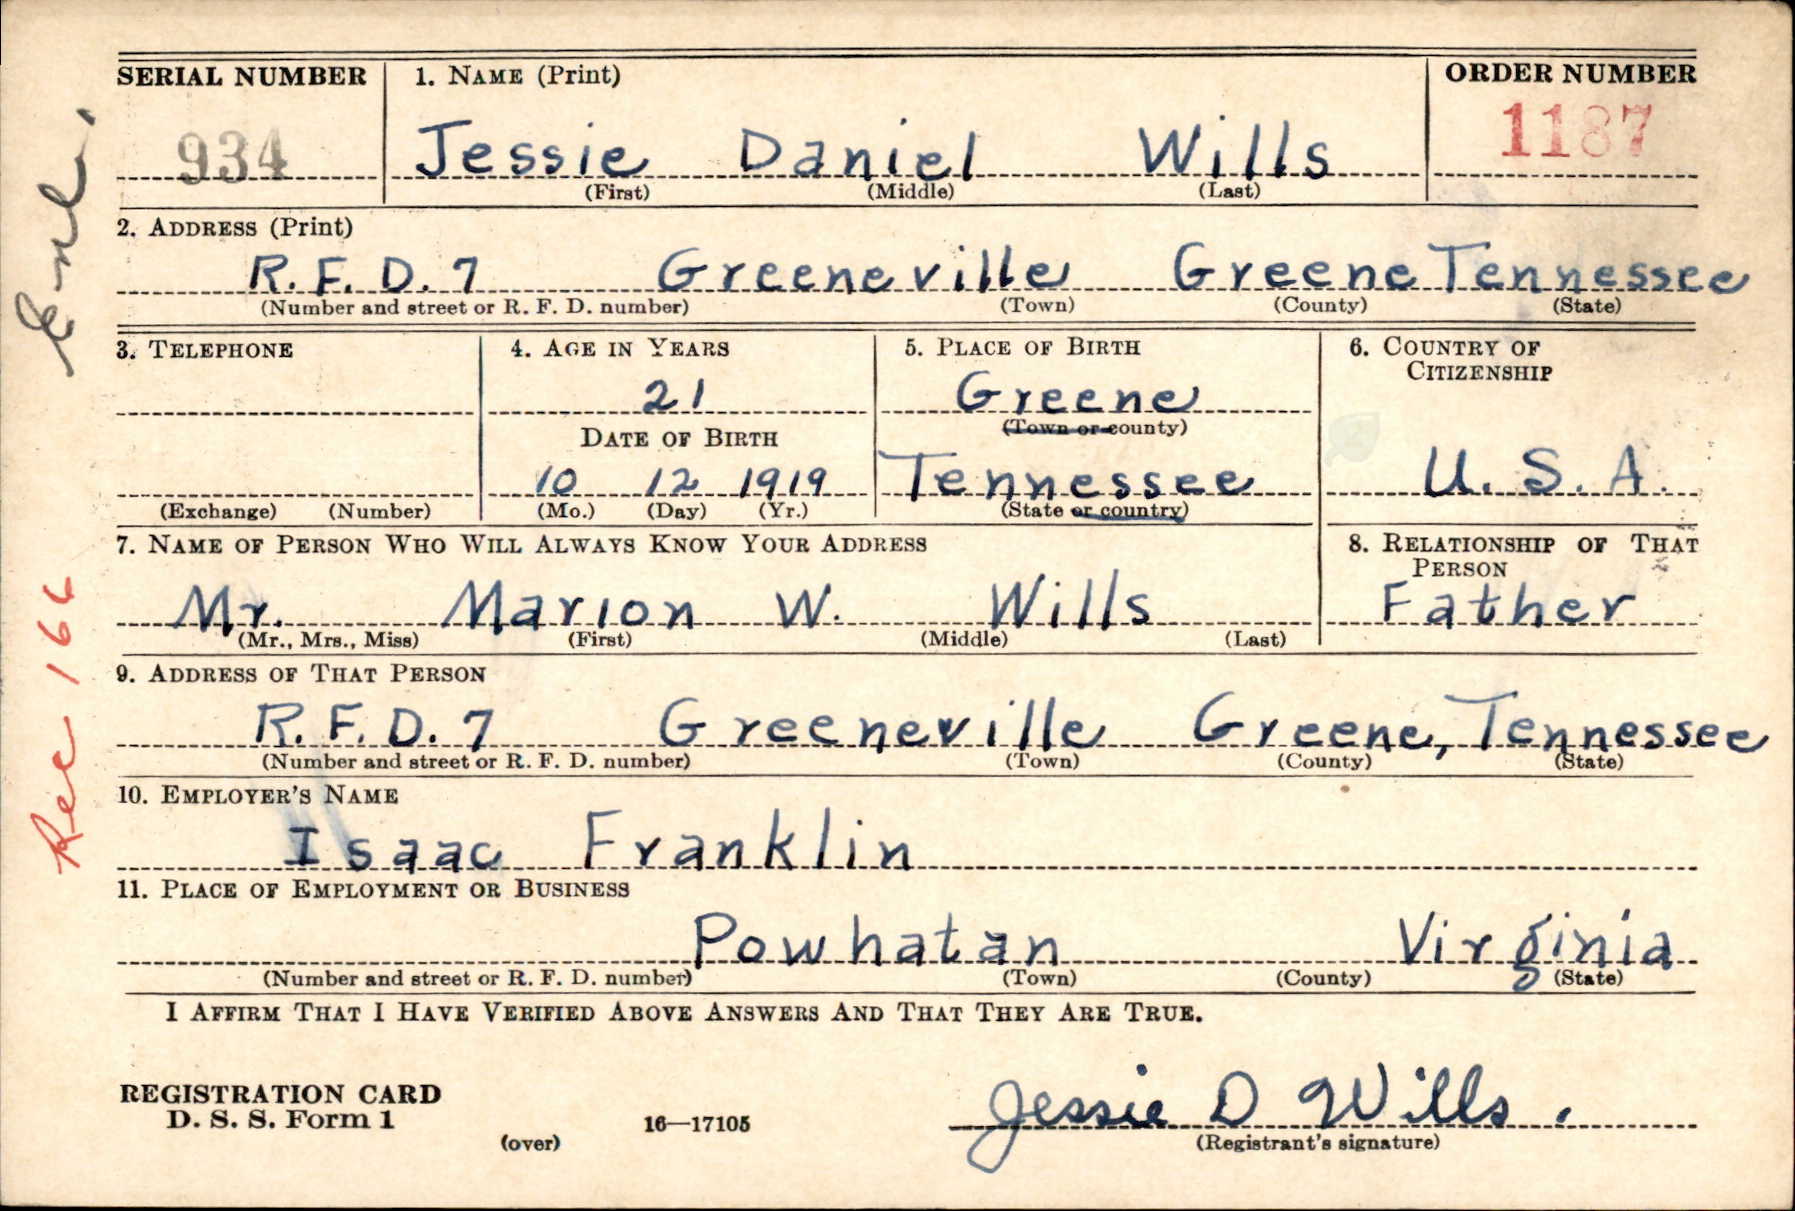 SERIAL NUMBER 1. NAME (Print) ORDER NUMBER
934 Jessie Daniel Wills 1187
(First) (Middle) (Last)
2. ADDRESS (Print)
R.F.D. 7 Greeneville Greene Tennessee
(Number and street or R. F. D. number) (Town) (County) (State)
3. TELEPHONE 4. AGE IN YEARS 5. PLACE OF BIRTH 6. COUNTRY OF CITIZENSHIP
21 Greene
DATE OF BIRTH (Town or county)
10 12 1919 Tennessee U. S. A.
(Exchange) (Number) (Mo.) (Day) (Yr.) (State or country)
7. NAME OF PERSON WHO WILL ALWAYS KNOW YOUR ADDRESS 8. RELATIONSHIP OF THAT PERSON
Mr. Marion W. Wills Father
(Mr., Mrs., Miss) (First) (Middle) (Last)
9. ADDRESS OF THAT PERSON
R.F.D. 7 Greeneville Greene, Tennessee
(Number and street or R. F. D. number) (Town) (County) (State)
10. EMPLOYER'S NAME
Isaac Franklin
11. PLACE OF EMPLOYMENT OR BUSINESS
Powhatan Virginia
(Number and street or R. F. D. number) (Town) (County) (State)
I AFFIRM THAT I HAVE VERIFIED ABOVE ANSWERS AND THAT THEY ARE TRUE.
REGISTRATION CARD
D. S. S. Form 1 16—17105 Jessie D Wills.
(over) (Registrant's signature)
Enl.
Rec 166